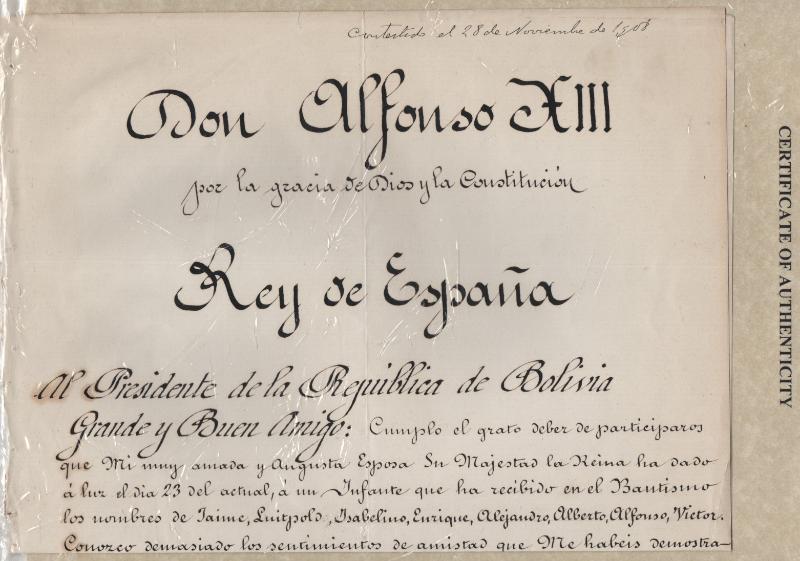 Contestado el 28 de Noviembre de 1908
Don Alfonso XIII
por la gracia de Dios y la Constitución
Rey de España
Al Presidente de la República de Bolivia
Grande y Buen Amigo: Cumplo el grato deber de participaros
que Mi muy amada y Augusta Esposa Su Majestad la Reina ha dado
á luz el dia 23 del actual, á un Infante que ha recibido en el Bautismo
los nombres de Jaime, Luitpold, Isabelino, Enrique, Alejandro, Alberto, Alfonso, Victor.
Conozco demasiado los sentimientos de amistad que Me habeis demostra-
CERTIFICATE OF AUTHENTICITY